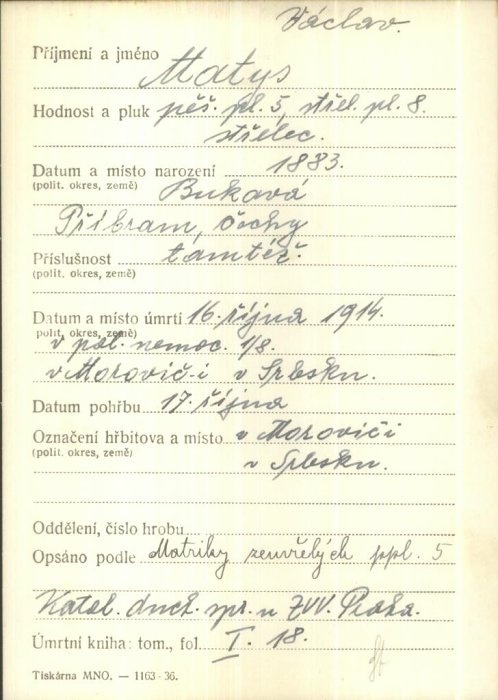 Václav.
Příjmení a jméno Matys
Hodnost a pluk pěš. pl. 5, střel. pl. 8.
střelec.
Datum a místo narození 1883.
(polit. okres, země) Buková
Příbram, Čechy
Příslušnost tamtéž.
(polit. okres, země)
Datum a místo úmrtí 16. října 1914.
(polit. okres, země)
v pol. nemoc. 1/8.
v Morovič-i v Srbsku.
Datum pohřbu 17. října
Označení hřbitova a místo v Moroviči
(polit. okres, země) v Srbsku.
Oddělení, číslo hrobu
Opsáno podle Matriky zemřelých ppl. 5
Katol. duch. spr. u ZVV. Praha.
Úmrtní kniha: tom., fol. I. 18.
Tiskárna MNO. — 1163-36.